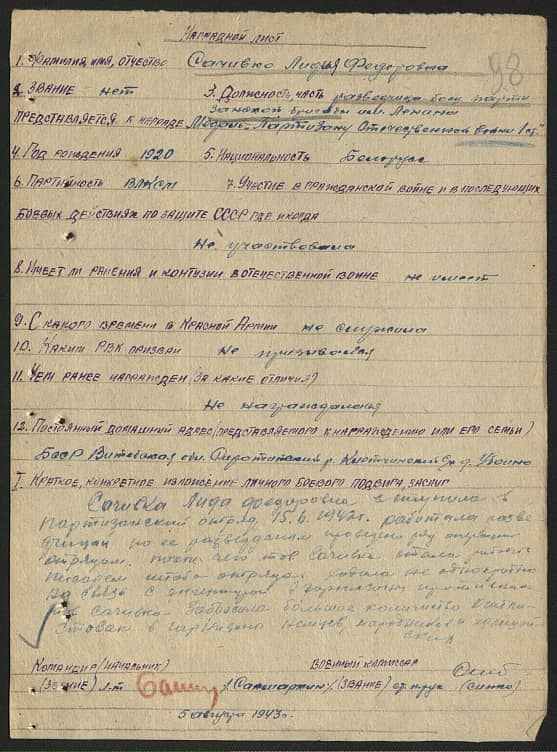 Наградной лист
98
1. Фамилия, имя, отчество Сачивко Лидия Федоровна
2. Звание нет 3. Должность, часть разведчица
бригады им. Ленина
представляется к награде Медали "Партизану Отечественной войны I ст."
4. Год рождения 1920 5. Национальность Белорус
6. Партийность ВЛКСМ 7. Участие в гражданской войне и в последующих
боевых действиях по защите СССР где и когда
Не участвовала
8. Имеет ли ранения и контузии в отечественной войне не имеет
9. С какого времени в Красной Армии не служила
10. Каким РВК призван не призывался
11. Чем ранее награжден (за какие отличия)
Не награждался
12. Постоянный домашний адрес (представляемого к награждению или его семьи)
БССР Витебская обл. Сиротинский р.
I. Краткое, конкретное изложение личного боевого подвига, заслуг
Сачивка Лида Федоровна вступила в
партизанский отряд 15.6.1942г. работала разве
дчицей по ее разведданым проведен ряд операций
отрядом. после чего тов Сачивка стала
писарем штаба отряда. ходила не однократно
на связь с агентурой в гарнизоны противника
Сачивко забросила большое количество
в гарнизоны немцев,
Командир (начальник) Военный комиссар
(звание) л-т (звание) ст. п-рук
5 августа 1943г.